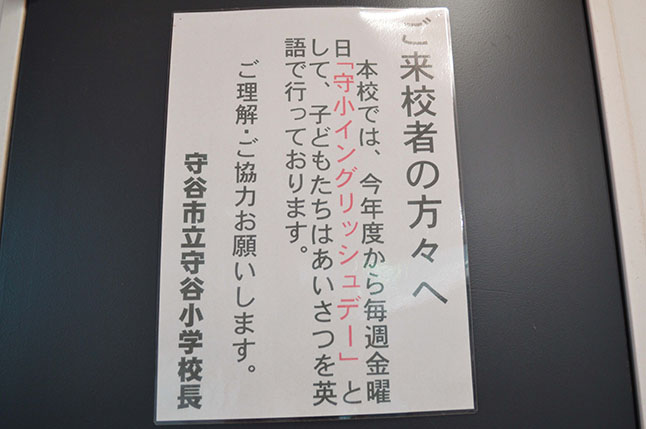 ご来校者の方々へ
本校では、今年度から毎週金曜
日「守小イングリッシュデー」と
して、子どもたちはあいさつを英
語で行っております。
ご理解・ご協力お願いします。
守谷市立守谷小学校長